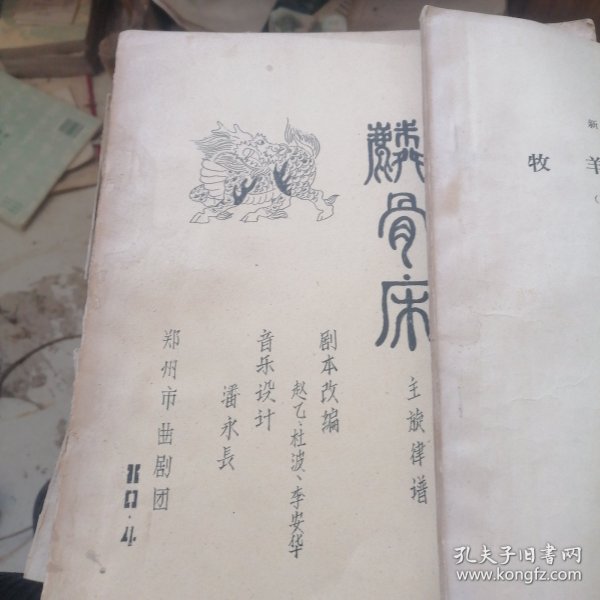 麟骨床
主旋律谱
剧本改编
赵乙、杜波、李安华
音乐设计
潘永長
郑州市曲剧团
新
牧羊
（
孔夫子旧书网
www.kongfz.com